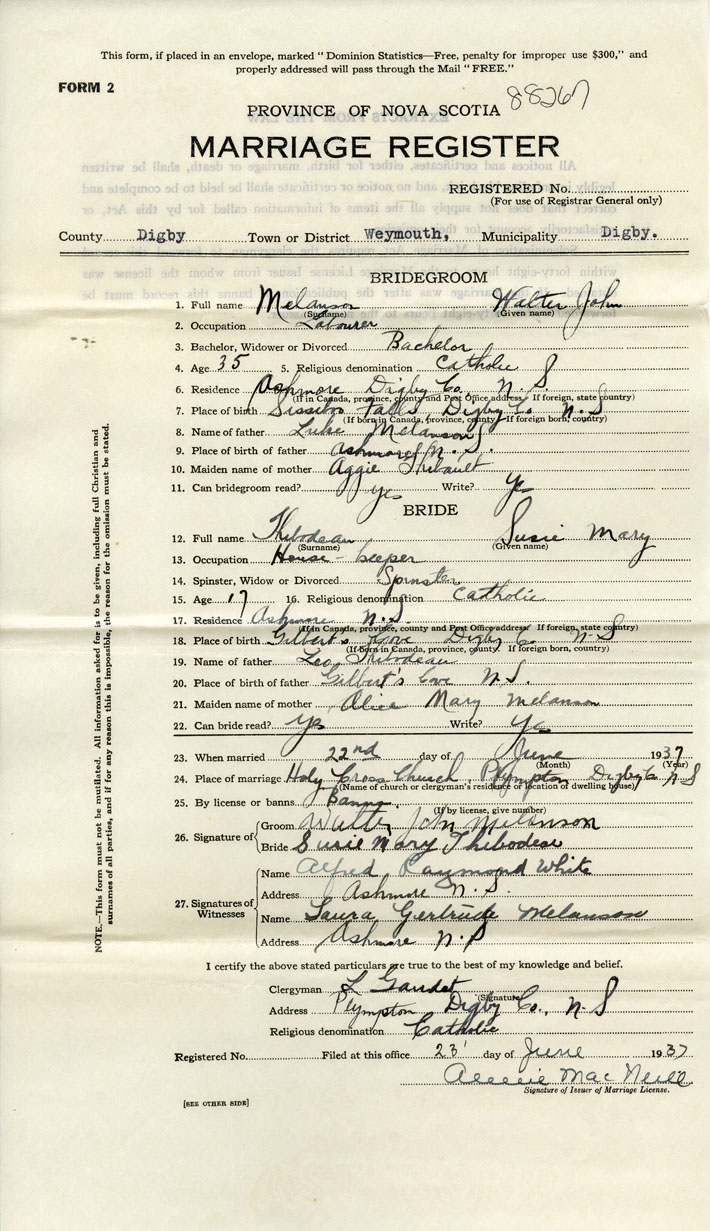 This form, if placed in an envelope, marked "Dominion Statistics—Free, penalty for improper use $300," and
properly addressed will pass through the Mail "FREE."
FORM 2
88267
PROVINCE OF NOVA SCOTIA
MARRIAGE REGISTER
REGISTERED No.
(For use of Registrar General only)
County Digby Town or District Weymouth, Municipality Digby.
BRIDEGROOM
1. Full name Melanson Walter John
(Surname) (Given name)
2. Occupation Labourer
3. Bachelor, Widower or Divorced Bachelor
4. Age 35 5. Religious denomination Catholic
6. Residence Ashmore Digby Co. N. S.
(If in Canada, province, county and Post Office address. If foreign, state country)
7. Place of birth Sissiboo Falls, Digby Co N. S
(If born in Canada, province, county. If foreign born, country)
8. Name of father Luke Melanson
9. Place of birth of father Ashmore N. S.
10. Maiden name of mother Aggie Thibault
11. Can bridegroom read? yes Write? Yes
BRIDE
12. Full name Thibodeau Susie Mary
(Surname) (Given name)
13. Occupation House-keeper
14. Spinster, Widow or Divorced Spinster
15. Age 17 16. Religious denomination Catholic
17. Residence Ashmore N. S.
(If in Canada, province, county and Post Office address. If foreign, state country)
18. Place of birth Gilbert's Cove Digby Co N. S
(If born in Canada, province, county. If foreign born, country)
19. Name of father Leo Thibodeau
20. Place of birth of father Gilbert's Cove N. S.
21. Maiden name of mother Alice Mary Melanson
22. Can bride read? Yes Write? Yes
23. When married 22nd day of June 1937
(Month) (Year)
24. Place of marriage Holy Cross Church, Plympton Digby Co N S
(Name of church or clergyman's residence or location of dwelling house)
25. By license or banns Banns.
(If by license, give number)
26. Signature of Groom Walter John Melanson
Bride Susie Mary Thibodeau
27. Signatures of Witnesses
Name Alfred Raymond White
Address Ashmore N. S.
Name Laura Gertrude Melanson
Address Ashmore N. S
I certify the above stated particulars are true to the best of my knowledge and belief.
Clergyman L Gaudet
(Signature)
Address Plympton Digby Co., N. S
Religious denomination Catholic
Registered No. Filed at this office 23 day of June 1937
Mac Neill
Signature of Issuer of Marriage License.
[SEE OTHER SIDE]
NOTE.—This form must not be mutilated. All information asked for is to be given, including full Christian and
surnames of all parties, and if for any reason this is impossible, the reason for the omission must be stated.